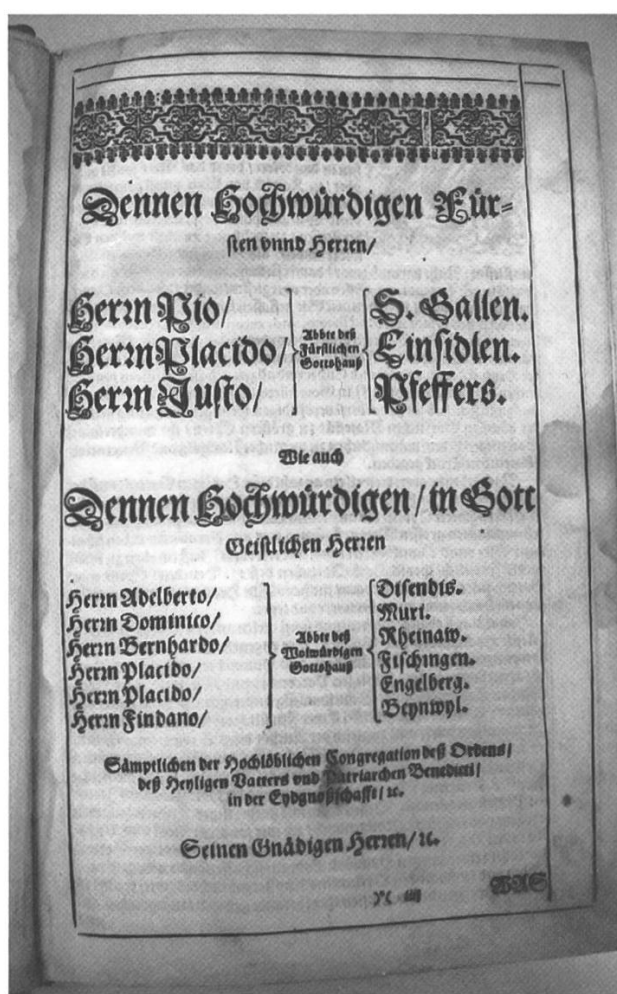 Dennen Hochwürdigen Für=
sten vnnd Herren/
Herrn Pio/
Herrn Placido/
Herrn Justo/
Abbte deß
Fürstlichen
Gottshauß
S. Gallen.
Einsidlen.
Pfeffers.
Wie auch
Dennen Hochwürdigen/ in Gott
Geistlichen Herren
Herrn Adelberto/
Herrn Dominico/
Herrn Bernhardo/
Herrn Placido/
Herrn Placido/
Herrn Findano/
Abbte deß
Wolwürdigen
Gottshauß
Disendis.
Muri.
Rheinaw.
Fischingen.
Engelberg.
Beynwyl.
Sämptlichen der Hochlöblichen Congregation deß Ordens/
deß Heyligen Vatters vnd Patriarchen Benedicti/
in der Eydgnoßschafft/ ꝛc.
Seinen Gnädigen Herren/ ꝛc.
WAS